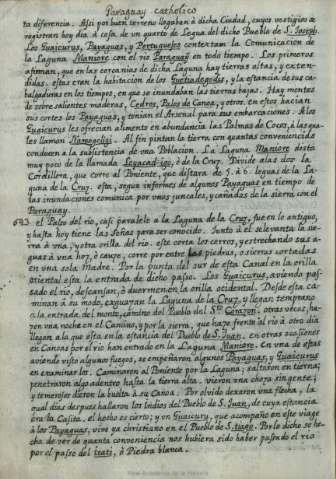 Paraguay Catholico
ta diferencia. Assi por buen terreno llegaban à dicha Ciudad, cuyos vestigios se
registran hoy dia à cosa de un quarto de Legua del dicho Pueblo de S. Joseph.
Los Guaicurus, Payaguas, y Portugueses contextan la Comunicacion de
la Laguna Maniore con el rio Paraguay en todo tiempo. Los primeros
afirman, que en las cercanias de dicha Laguna hay tierras altas, y exten-
didas. estas eran la habitacion de los Guetiadegodis, y la estancia de sus ca-
balgaduras en los tiempos, en que se inundaban las tierras bajas. Hay montes
de sobresalientes maderas, Cedros, Palos de Canoa, y otros. en estos hacian
sus cortes los Payaguas, y tenian el Arsenal para sus embarcaciones. A los
Guaicurus les ofrecian alimento en abundancia las Palmas de Cocos, à las qua-
les llaman Namogoligi. Al fin es tanta la tierra con quantas conveniencias
conducen a la subsistencia de una Poblacion. La Laguna Maniore dista
muy poco de la llamada, ò de la Cruz. Divide a las dos la
Cordillera, que corre al Poniente, que distara de 5. à 6. leguas de la La-
guna de la Cruz. esta, segun informes de algunos Payaguas en tiempo de
las inundaciones comunica por unos juncales, y cañadas de la sierra con el
Paraguay.
el Paso del rio, casi paralelo a la Laguna de la Cruz, fue en lo antiguo,
y hasta hoy tiene las señas para ser conocido. Junto à el se levanta la sie-
rra à una, y otra orilla del rio. este corta los cerros, y estrechando sus a-
guas à una hoz, ò cauze, corre por entre las piedras, o sierras cortadas
en una sola Madre. Por la punta del sur de esta Canal en la orilla
oriental esta la entrada de dicho passo. Los Guaicurus, aviendo pas-
sado el rio, descansan, ò duermen en la orilla ocidental. Desde esta ca-
minan à su modo, atraviesan la Laguna de la Cruz, y llegan temprano
a la entrada del monte, camino del Pueblo del Sto. Corazon. otras vezes, ha-
zen una noche en el Camino, y por la sierra, que haze frente al rio à otro dia
llegan a la que esta en la estancia del Pueblo de S. Juan. en otras ocasiones
en Canoas por el rio han entrado en la Laguna Maniore. en una de estas
aviendo visto algunos fuegos, se empeñaron algunos Payaguas, y Guaicurus
en examinarlos. Caminaron al Poniente por la Laguna; saltaron en tierra;
penetraron algo adentro hasta la tierra alta. vieron una choza sin gente;
y temerosos dieron la buelta à su Canoa. Por olvido dexaron una flecha, la
qual dias despues hallaron los Indios del Pueblo de S. Juan, de cuya estancia
era la Casita. el hecho es cierto; y un Guaicuru, que acompaño en este viage
à los Payaguas, vive ya christiano en el Pueblo de S.tiago. Por lo dicho se he-
cha de ver de quanta conveniencia nos hubiera sido haber passado el rio
por el passo del Itati, ò Piedra blanca.